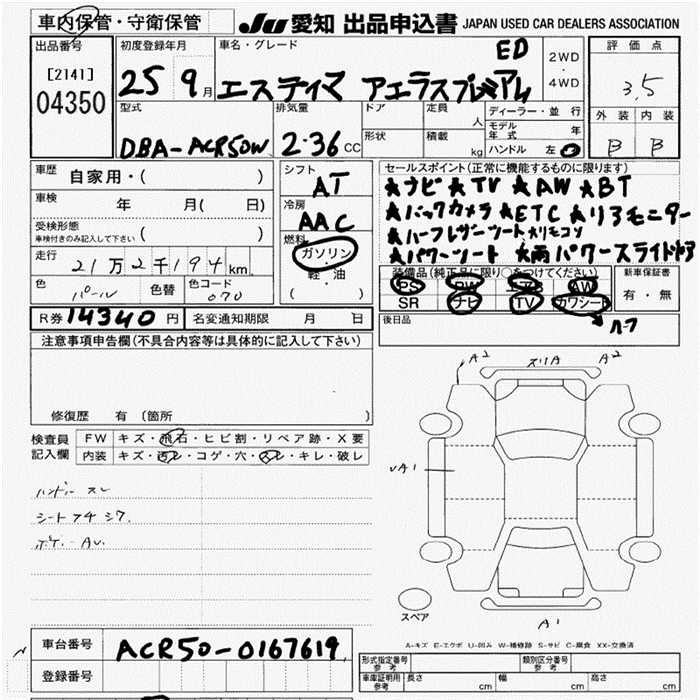 車内保管・守衛保管
JU 愛知 出品申込書 JAPAN USED CAR DEALERS ASSOCIATION
出品番号
[2141]
04350
初度登録年月
25 9月
車名・グレード
ED
エスティマ アエラスプレミアム
2WD
・
4WD
評価点
3.5
外装 内装
B B
型式
DBA-ACR50W
排気量
2.36 CC
ドア 定員 人
形状 積載 kg
ディーラー・並行
モデル年式 年
ハンドル 左・
車歴 自家用・( )
車検 年 月( 日)
受検形態 ( )
車検付きのみ記入して下さい
走行
21万2千194km
色 パール
色替
色コード 070
シフト
AT
冷房
AAC
燃料
ガソリン
・
軽・油
( )
セールスポイント(正常に機能するものに限ります)
★ナビ ★TV ★AW ★BT
★バックカメラ ★ETC ★リアモニター
★ハーフレザーシート ★リモコン
★パワーシート ★両パワースライドドア
装備品(純正品に限り○をつけてください)
PS PW AW
SR ナビ TV カワシート
ハーフ
新車保証書
有・無
後日品
R券 14340円
名変通知期限 月 日
注意事項申告欄(不具合内容等は具体的に記入して下さい)
修復歴 有(箇所
検査員記入欄
FW キズ・飛石・ヒビ割・リペア跡・X要
内装 キズ・汚レ・コゲ・穴・スレ・キレ・破レ
ハンドル スレ
A2 スリA A2
UA1
A1
スペア
A-キズ E-エクボ U-凹み W-補修跡 S-サビ C-腐食 XX-交換済
車台番号 ACR50-0167619
登録番号
形式指定番号 参考
類別区分番号 参考
車庫証明用 参考 長さ cm 幅 cm 高さ cm